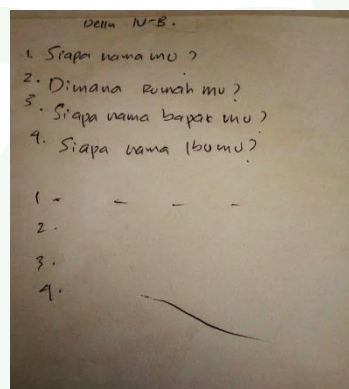 Della IV-B.
1. Siapa nama mu ?
2. Dimana Rumah mu ?
3. Siapa nama bapak mu ?
4. Siapa nama Ibumu ?
1 - - - -
2.
3.
4.